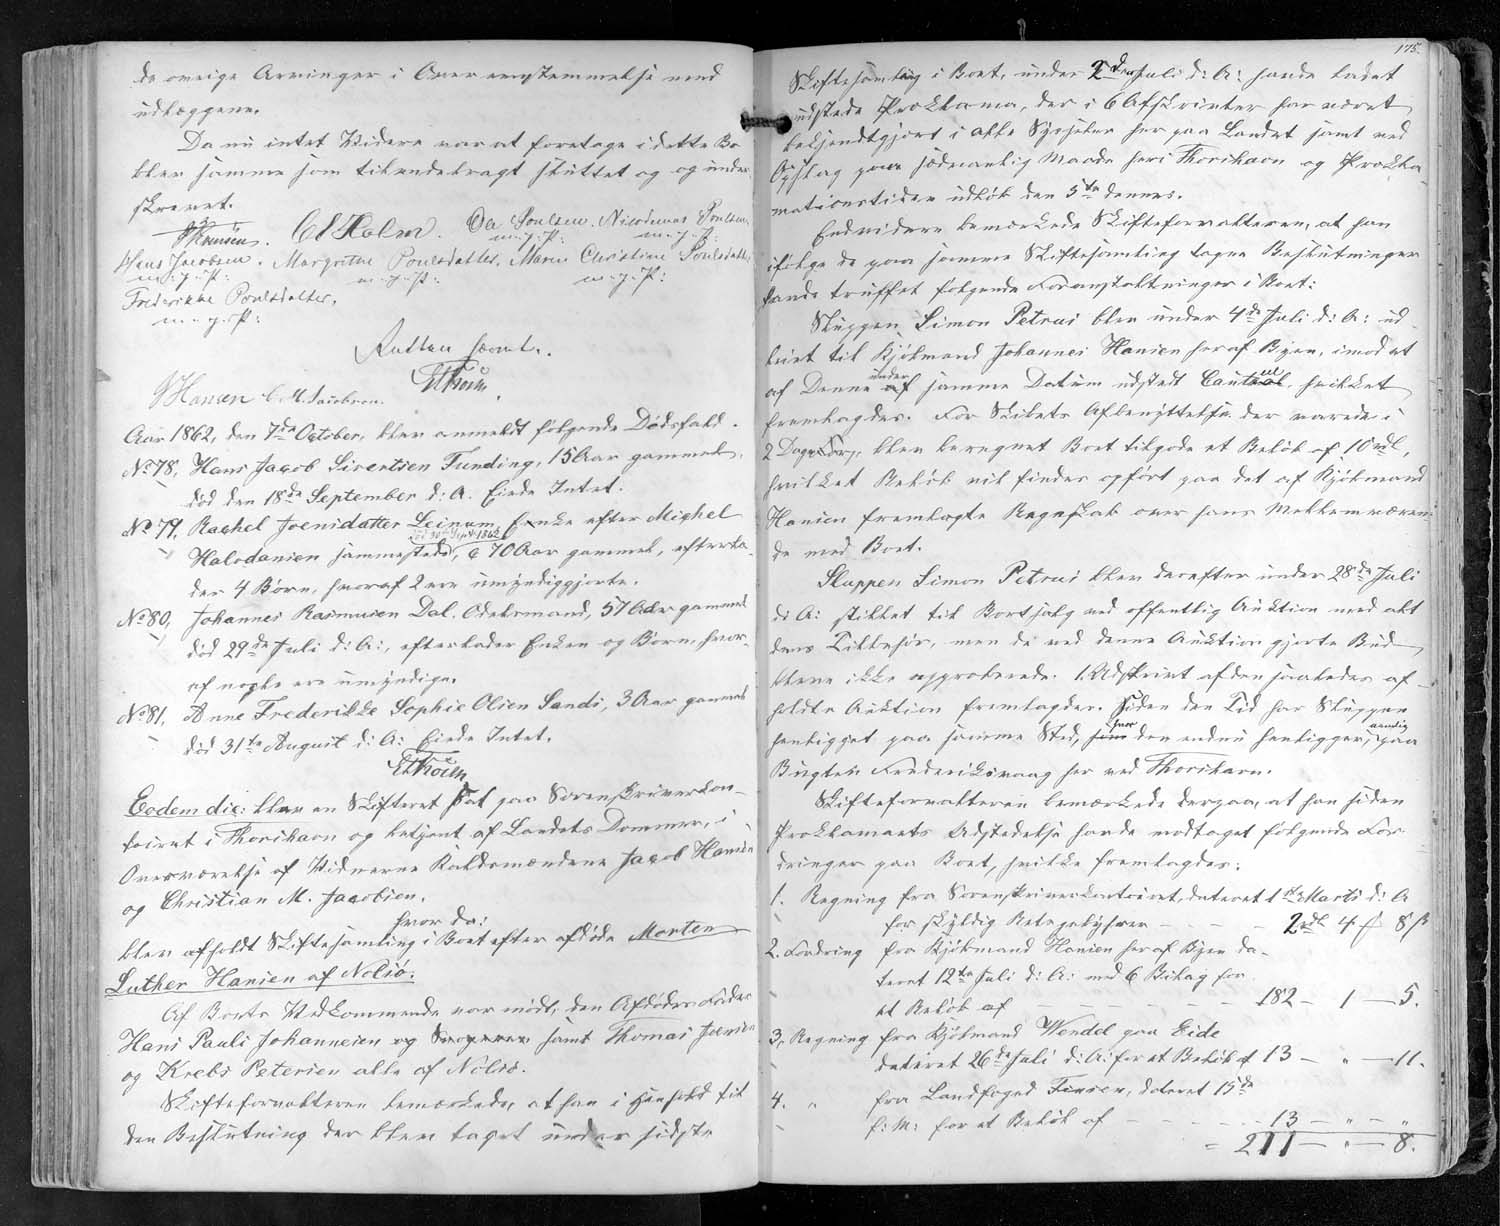 de øvrige Arvinger i Overensstemmelse med
udlæggene.
Da nu intet Videre var at foretage i dette Bo
blev samme som tilendebragt sluttet og under-
skrevet.
HHansen. C S Holm. Ole Poulsen. Nicodemus Poulsen.
m: f: P: m: f: P:
Hans Jacobsen. Margrethe Poulsdatter. Maren Christine Poulsdatter.
m: f: P: m: f: P: m: f: P:
Frederikke Poulsdatter.
m: f: P:
Retten hævet.
JHansen C. M. Jacobsen.
Aar 1862, den 7de October, blev anmeldt følgende Dødsfald.
No 78, Hans Jacob Sivertsen Funding, 15 Aar gammel,
død den 18de September d: A. Eiede Intet.
No 79, Rachel Joensdatter Leinum, Enke efter Mighel
død 30te Sept 1862
Halvdansen sammesteds, c 70 Aar gammel, efterla-
der 4 Børn, hvoraf 2 ere umyndiggjorte.
No 80, Johannes Rasmussen Dal, Odelsmand, 57 Aar gammel
død 29de Juli d: A:, efterlader Enken og Børn, hvor-
af nogle ere umyndige.
No 81, Anne Frederikke Sophie Olsen Sands, 3 Aar gammel
død 31te August d: A: Eiede Intet.
Eodem die: blev en Skifteret sat paa Sorenskriverkon-
toiret i Thorshavn og betjent af Landets Dommer, i
Overværelse af Vidnerne Raldsmændene Jacob Hansen
og Christian M. Jacobsen,
hvor da:
blev afholdt Skiftesamling i Boet efter afdøde Morten
Luther Hansen af Nolsø.
Af Boets Vedkommende var mødt, den Afdødes Fader
Hans Pauli Johannesen samt Thomas Joensen
og Krebs Petersen alle af Nolsø.
Skifteforvalteren bemærkede, at han i Henhold til
den Beslutning der blev taget under sidste
175.
Skiftesamling i Boet, under 2den Juli d: A: havde ladet
udstede Proklama, der i 6 Afskrivter har været
bekjendtgjort i alle Sysseler her paa Landet samt ved
Opslag paa sædvanlig Maade her i Thorshavn og Prokla-
mationstiden udløb den 5te dennes.
Endvidere bemærkede Skifteforvalteren, at han
ifølge de paa samme Skiftesamling tagne Beslutninger
havde truffet følgende Foranstaltninger i Boet:
Sluppen Simon Petrus blev under 4de Juli d: A: ud-
leiet til Kjøbmand Johannes Hansen her af Byen, imod at
af Denne under samme Datum udstedt Caution hvilket
fremlagdes. For Skibets Afbenyttelse der varede i
2 Dage, blev beregnet Boet tilgode et Beløb af 10 rdl,
hvilket Beløb vil findes opført paa det af Kjøbmand
Hansen fremlagte Regnskab over hans Mellemværen-
de med Boet.
Sluppen Simon Petrus blev derefter under 28de Juli
d: A: stillet til Bortsalg ved offentlig Auktion med alt
dens Tilbehør, men de ved denne Auktion gjorte Bud
bleve ikke approberede. Udskrivt af den saaledes af-
holdte Auktion fremlagdes. Siden den Tid har Sluppen
henligget paa samme Sted, hvor den endnu henligger, nemlig paa
Bugten Frederiksvaag her ved Thorshavn.
Skifteforvalteren bemærkede derpaa, at han siden
Proklamaets Udstedelse havde modtaget følgende For-
dringer paa Boet, hvilke fremlagdes:
1. Regning fra Sorenskriverkontoiret, dateret 1ste Marts d: A
for skyldig Retsgebyhrer - - - 2 rdl 4 ß 8 ß
2. Fordring fra Kjøbmand Hansen her af Byen da-
teret 12te Juli d: A: med 6 Bilag for
et Beløb af - - - - - - 182 - 1 - 5.
3. Regning fra Kjøbmand Wendel paa Eide
dateret 26de Juli d: A: for et Beløb af 13 - " - 11.
4. " fra Landfoged Finsen, dateret 15de
f: M: for et Beløb af - - - - - 13 - " - "
= 211 - " - 8.